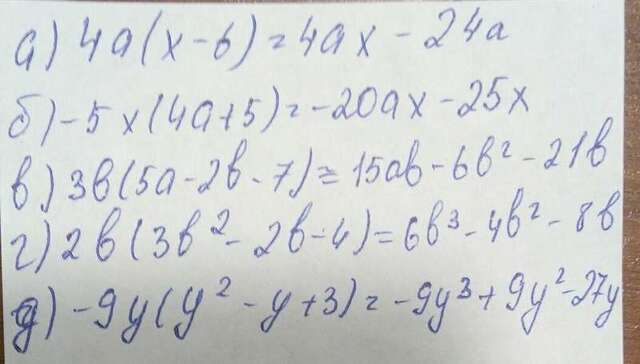 а) 4a(x-6)=4ax-24a
б) -5x(4a+5)=-20ax-25x
в) 3b(5a-2b-7)=15ab-6b²-21b
г) 2b(3b²-2b-4)=6b³-4b²-8b
д) -9y(y²-y+3)=-9y³+9y²-27y